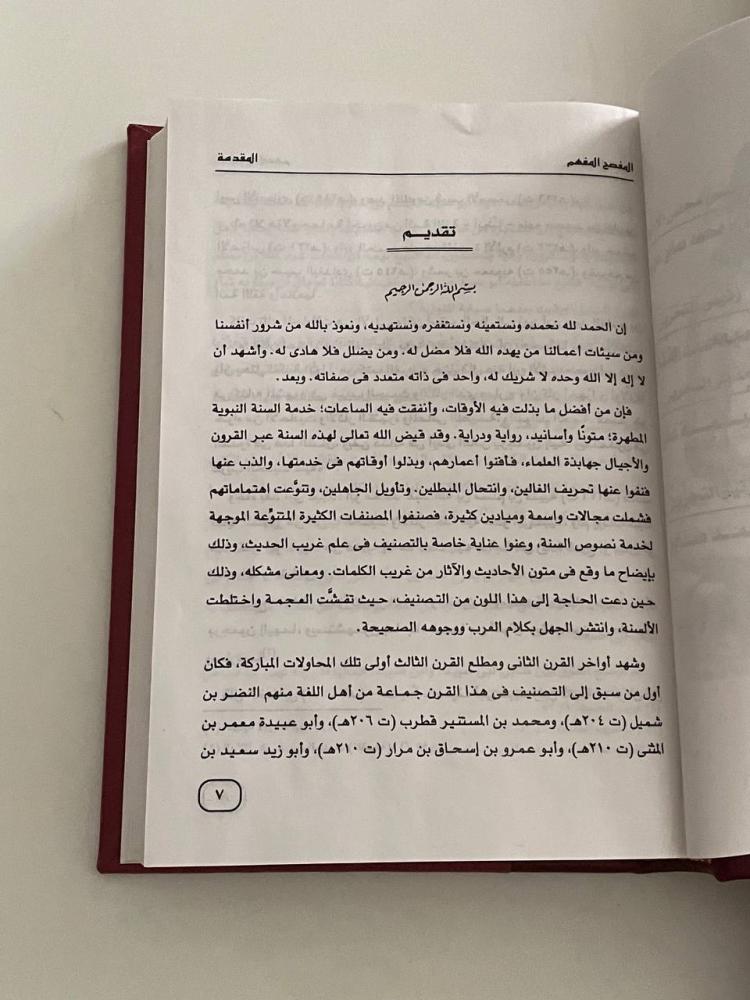 المفصح المفهم
المقدمة
تقديم
بسم الله الرحمن الرحيم
إن الحمد لله نحمده ونستعينه ونستغفره ونستهديه، ونعوذ بالله من شرور أنفسنا
ومن سيئات أعمالنا من يهده الله فلا مضل له. ومن يضلل فلا هادى له. وأشهد أن
لا إله إلا الله وحده لا شريك له، واحد فى ذاته متعدد فى صفاته. وبعد.
فإن من أفضل ما بذلت فيه الأوقات، وأنفقت فيه الساعات؛ خدمة السنة النبوية
المطهرة؛ متونًا وأسانيد، رواية ودراية. وقد قيض الله تعالى لهذه السنة عبر القرون
والأجيال جهابذة العلماء، فـأفنوا أعمارهم، وبذلوا أوقاتهم فى خدمتها، والذب عنها
فنفوا عنها تحريف الغالين، وانتحال المبطلين. وتأويل الجاهلين، وتنوَّعت اهتماماتهم
فشملت مجالات واسعة وميادين كثيرة، فصنفوا المصنفات الكثيرة المتنوِّعة الموجهة
لخدمة نصوص السنة، وعنوا عناية خاصة بالتصنيف فى علم غريب الحديث، وذلك
بإيضاح ما وقع فى متون الأحاديث والآثار من غريب الكلمات. ومعانى مشكله، وذلك
حين دعت الحاجة إلى هذا اللون من التصنيف، حيث تفشَّت العجمة واختلطت
الألسنة، وانتشر الجهل بكلام العرب ووجوهه الصحيحة.
وشهد أواخر القرن الثانى ومطلع القرن الثالث أولى تلك المحاولات المباركة، فكان
أول من سبق إلى التصنيف فى هذا القرن جماعة من أهل اللغة منهم النضر بن
شميل (ت ٢٠٤هـ)، ومحمد بن المستنير قطرب (ت ٢٠٦هـ)، وأبو عبيدة معمر بن
المثنى (ت ٢١٠هـ)، وأبو عمرو بن إسحاق بن مرار (ت ٢١٠هـ)، وأبو زيد سعيد بن
٧